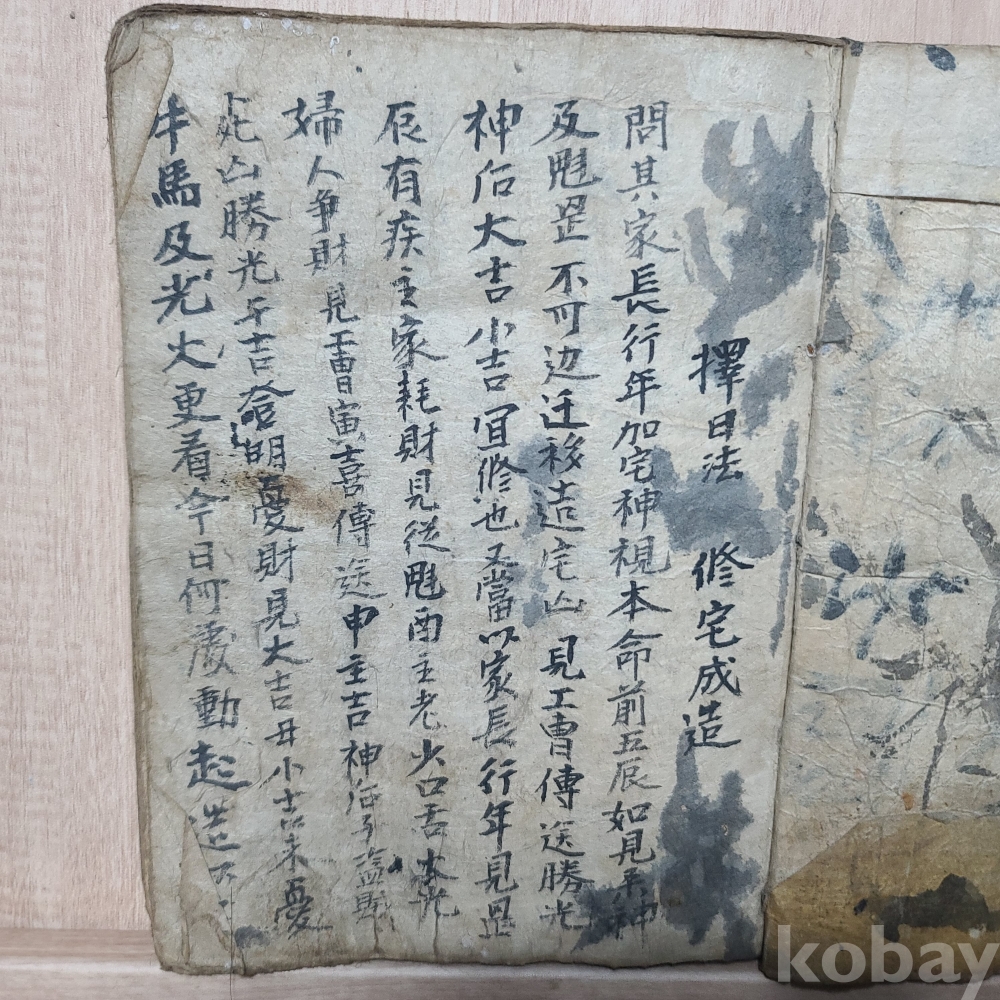 擇日法 修宅成造
問其家長行年加宅神視本命前五辰如見天神
及魁罡不可边迁移造宅凶見工曺傳送勝光
神后大吉小吉宜修也又當以家長行年見罡
辰有疾主家耗財見従魁酉主老少口舌
婦人争財見工曺寅喜傳送申主吉神后子盗賊
死凶勝光午吉登明憂財見大吉丑小吉未憂
牛馬及光火更看今日何處動起造
kobay